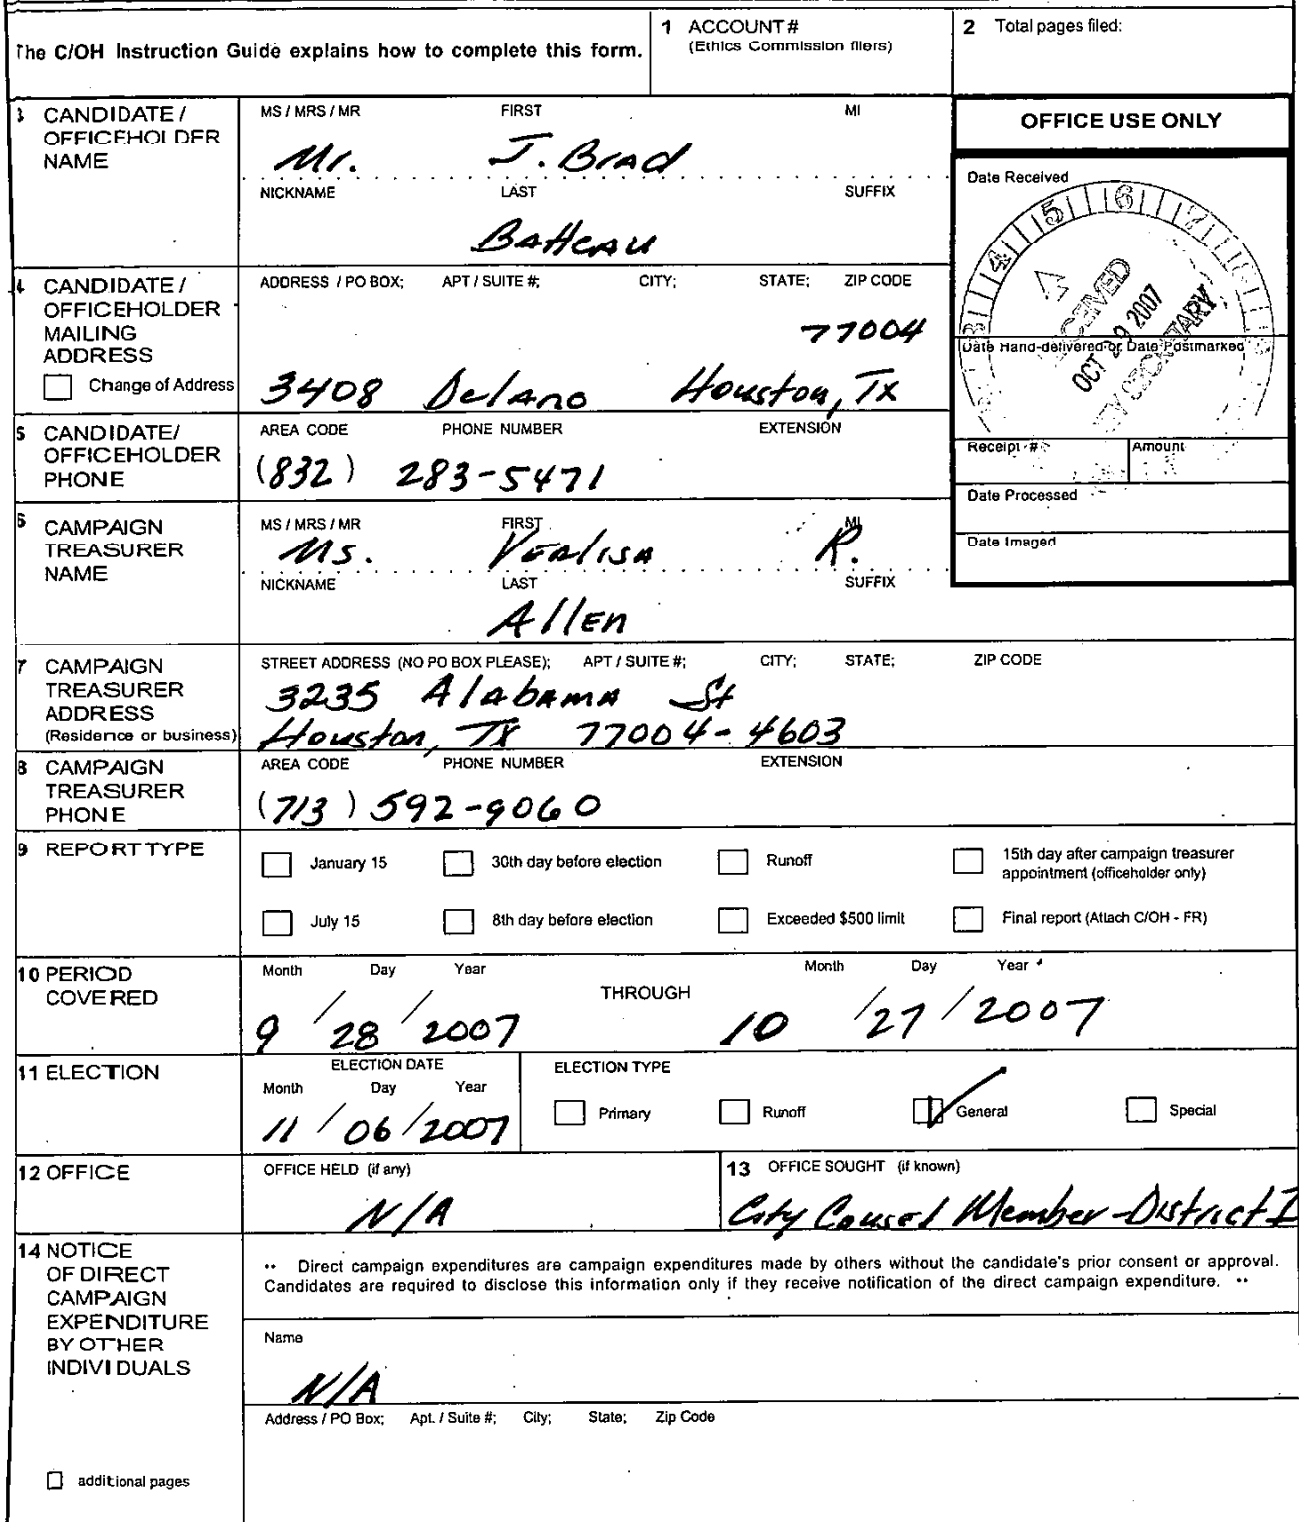 The C/OH Instruction Guide explains how to complete this form.
1 ACCOUNT #
(Ethics Commission filers)
2 Total pages filed:
3 CANDIDATE /
OFFICEHOLDER
NAME
MS / MRS / MR FIRST MI
Mr. J. Brad
NICKNAME LAST SUFFIX
Batteau
OFFICE USE ONLY
Date Received
RECEIVED
OCT 29 2007
CITY SECRETARY
Date Hand-delivered or Date Postmarked
Receipt # Amount
Date Processed
Date Imaged
4 CANDIDATE /
OFFICEHOLDER
MAILING
ADDRESS
Change of Address
ADDRESS / PO BOX; APT / SUITE #; CITY; STATE; ZIP CODE
77004
3408 Delano Houston, Tx
5 CANDIDATE/
OFFICEHOLDER
PHONE
AREA CODE PHONE NUMBER EXTENSION
(832) 283-5471
6 CAMPAIGN
TREASURER
NAME
MS / MRS / MR FIRST MI
Ms. Verlisa R.
NICKNAME LAST SUFFIX
Allen
7 CAMPAIGN
TREASURER
ADDRESS
(Residence or business)
STREET ADDRESS (NO PO BOX PLEASE); APT / SUITE #; CITY; STATE; ZIP CODE
3235 Alabama St
Houston, Tx 77004-4603
8 CAMPAIGN
TREASURER
PHONE
AREA CODE PHONE NUMBER EXTENSION
(713) 592-9060
9 REPORT TYPE
January 15 30th day before election Runoff 15th day after campaign treasurer
appointment (officeholder only)
July 15 8th day before election Exceeded $500 limit Final report (Attach C/OH - FR)
10 PERIOD
COVERED
Month Day Year Month Day Year
THROUGH
9 / 28 / 2007 10 / 27 / 2007
11 ELECTION
ELECTION DATE
Month Day Year
11 / 06 / 2007
ELECTION TYPE
Primary Runoff General Special
12 OFFICE
OFFICE HELD (if any)
N/A
13 OFFICE SOUGHT (if known)
City Counsel Member-District I
14 NOTICE
OF DIRECT
CAMPAIGN
EXPENDITURE
BY OTHER
INDIVIDUALS
•• Direct campaign expenditures are campaign expenditures made by others without the candidate's prior consent or approval.
Candidates are required to disclose this information only if they receive notification of the direct campaign expenditure. ••
Name
N/A
Address / PO Box; Apt. / Suite #; City; State; Zip Code
additional pages